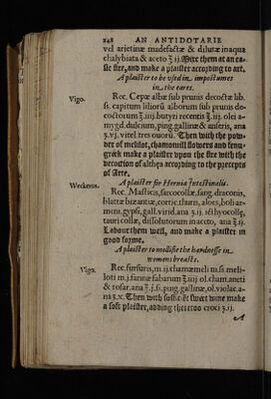 248 AN ANTIDOTARIE
vel arietinæ madefactæ & dilutæ in aqua
chalybiata & aceto ℥ ij. Mixe them at an ea-
sie fire, and make a plaister according to art.
A plaister to be used in impostumes
in the eares.
Vigo.
Rec. Cepæ albæ sub prunis decoctæ lib.
ss. capitum liliorũ alborum sub prunis de-
coctorum ℥ iiij. butyri recentis ℥ iij. olei a-
mygd. dulcium, ping. gallinæ & anseris, ana
ʒ vj. vitel. tres ovorũ. Then with the pow-
der of melilot, chamomill flowers and fenu-
greek make a plaister upon the fire with the
decoction of althea according to the precepts
of Arte.
A plaister for Hernia Intestinalis.
Weckerus.
Rec. Masticis, sarcocollæ, sang. draconis,
blattæ bizantiæ, cortic. thuris, aloes, boli ar-
meni, gypsi, gall. virid. ana ʒ iij. icthyocollę,
tauri collæ, dissolutorum in aceto, ana
Labour them well, and make a plaister in
good forme.
A plaister to mollifie the hardnesse in
womens breasts.
Vigo.
Rec. furfuris, m. ij. chamæmeli m. ss. meli-
loti m. j. farinæ fabarum ℥ iiij. ol. cham. aneti
& rosar. ana ping. gallinæ, ol. violac. a-
na ʒ x. Then with sodde & sweet wine make
a soft plaister, adding thereto croci ʒ ij.
A